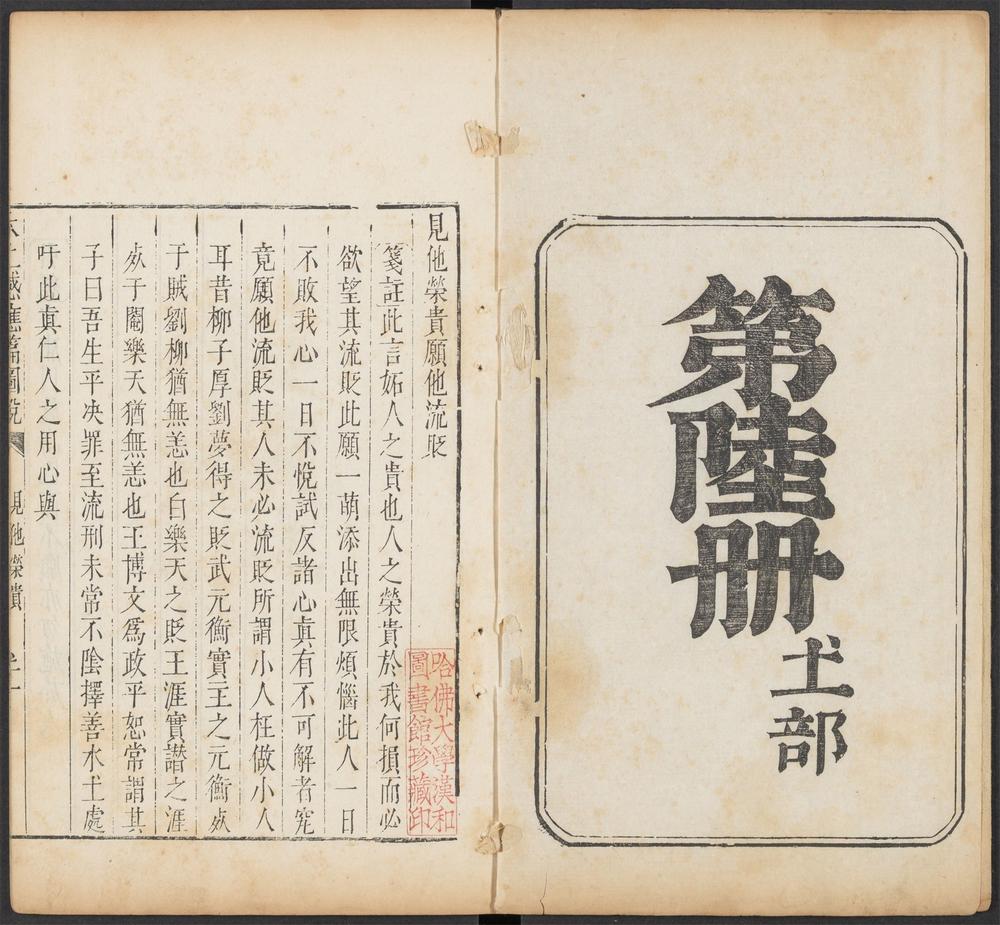 第陸册
土部
見他榮貴願他流貶
箋註此言妬人之貴也人之榮貴於我何損而必
欲望其流貶此願一萌添出無限煩惱此人一日
不敗我心一日不悅試反諸心真有不可解者究
竟願他流貶其人未必流貶所謂小人枉做小人
耳昔柳子厚劉夢得之貶武元衡實主之元衡死
于賊劉柳猶無恙也白樂天之貶王涯實譖之涯
死于闇樂天猶無恙也王博文爲政平恕常謂其
子曰吾生平决罪至流刑未常不陰擇善水土處
吁此真仁人之用心與
太上感應篇圖説
見他榮貴
哈佛大學漢和
圖書館珍藏印